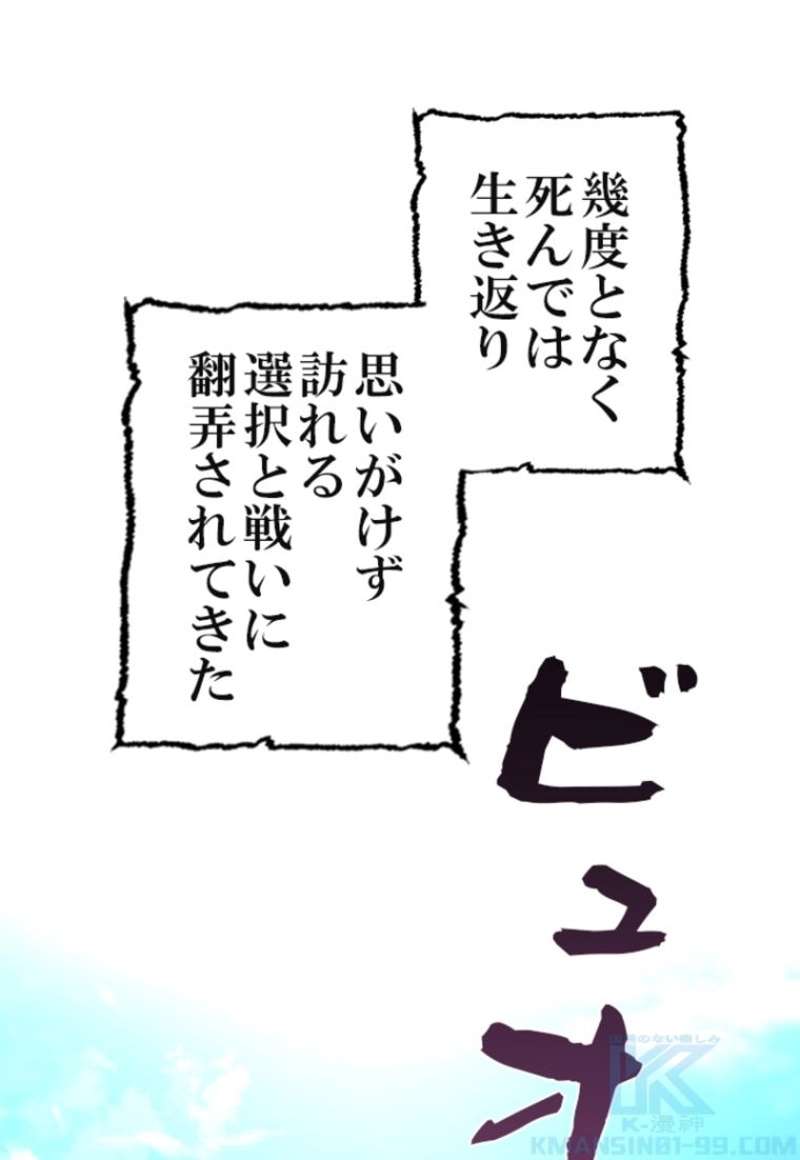 幾度となく
死んでは
生き返り
思いがけず
訪れる
選択と戦いに
翻弄されてきた
ビュオ
K-漫神
KMANSIN01-99.COM